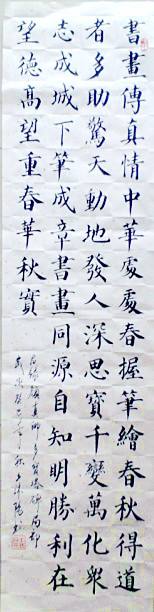 書畫傳真情中華處處春握筆繪春秋得道
者多助驚天動地發人深思寶千變萬化眾
志成城下筆成章書畫同源自知明勝利在
望德高望重春華秋實